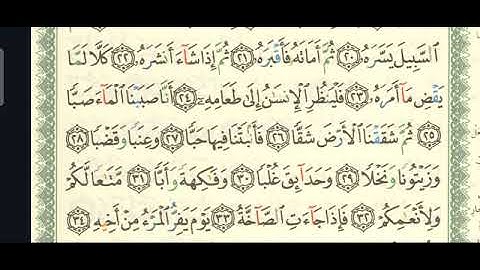 ٱلسَّبِيلَ يَسَّرَهُۥ ٢٠ ثُمَّ أَمَاتَهُۥ فَأَقْبَرَهُۥ ٢١ ثُمَّ إِذَا شَآءَ أَنشَرَهُۥ ٢٢ كَلَّا لَمَّا
يَقْضِ مَآ أَمَرَهُۥ ٢٣ فَلْيَنظُرِ ٱلْإِنسَٰنُ إِلَىٰ طَعَامِهِۦٓ ٢٤ أَنَّا صَبَبْنَا ٱلْمَآءَ صَبًّا
٢٥ ثُمَّ شَقَقْنَا ٱلْأَرْضَ شَقًّا ٢٦ فَأَنۢبَتْنَا فِيهَا حَبًّا ٢٧ وَعِنَبًا وَقَضْبًا ٢٨
وَزَيْتُونًا وَنَخْلًا ٢٩ وَحَدَآئِقَ غُلْبًا ٣٠ وَفَٰكِهَةً وَأَبًّا ٣١ مَّتَٰعًا لَّكُمْ
وَلِأَنْعَٰمِكُمْ ٣٢ فَإِذَا جَآءَتِ ٱلصَّآخَّةُ ٣٣ يَوْمَ يَفِرُّ ٱلْمَرْءُ مِنْ أَخِيهِ ٣٤